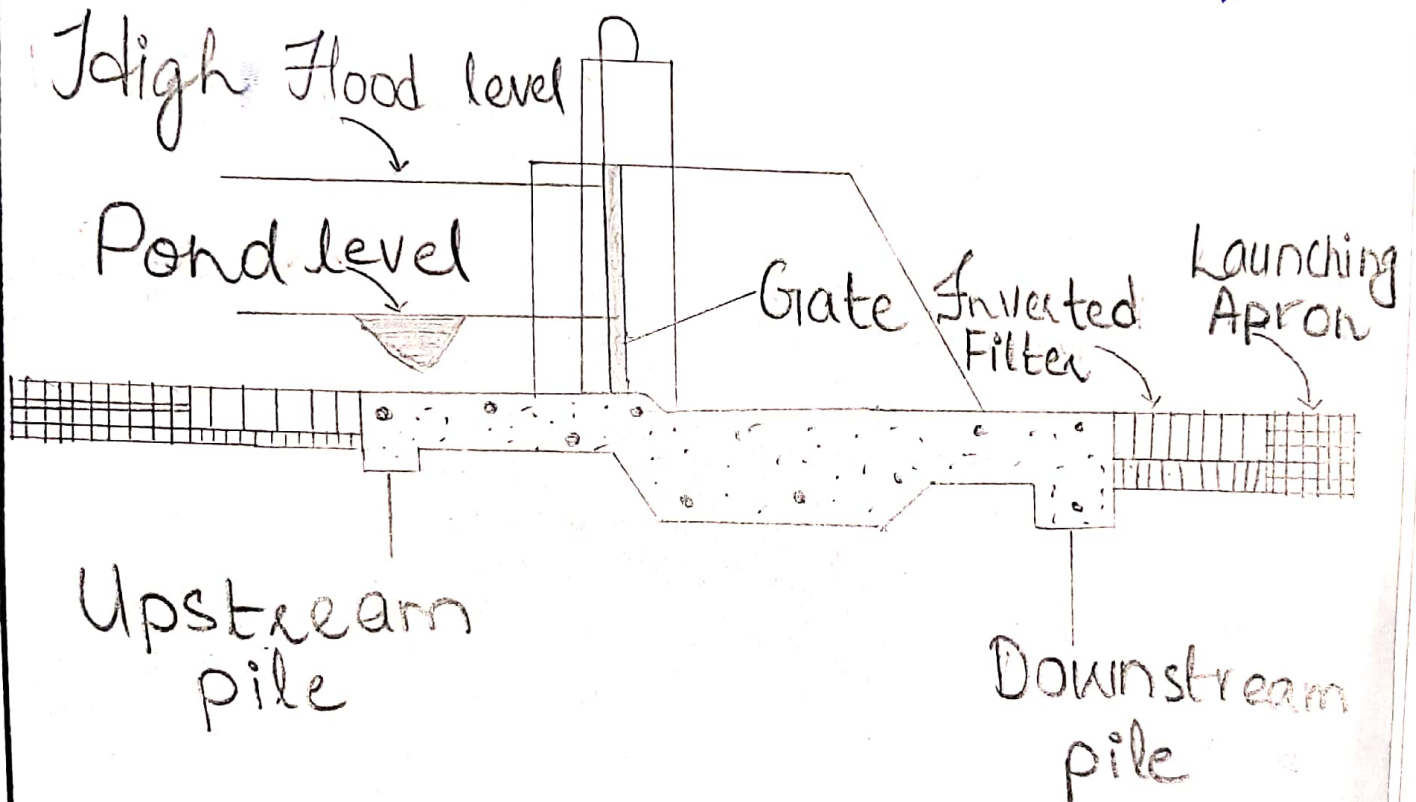 High Flood level
Pond level
Gate
Inverted
Filter
Launching
Apron
Upstream
pile
Downstream
pile